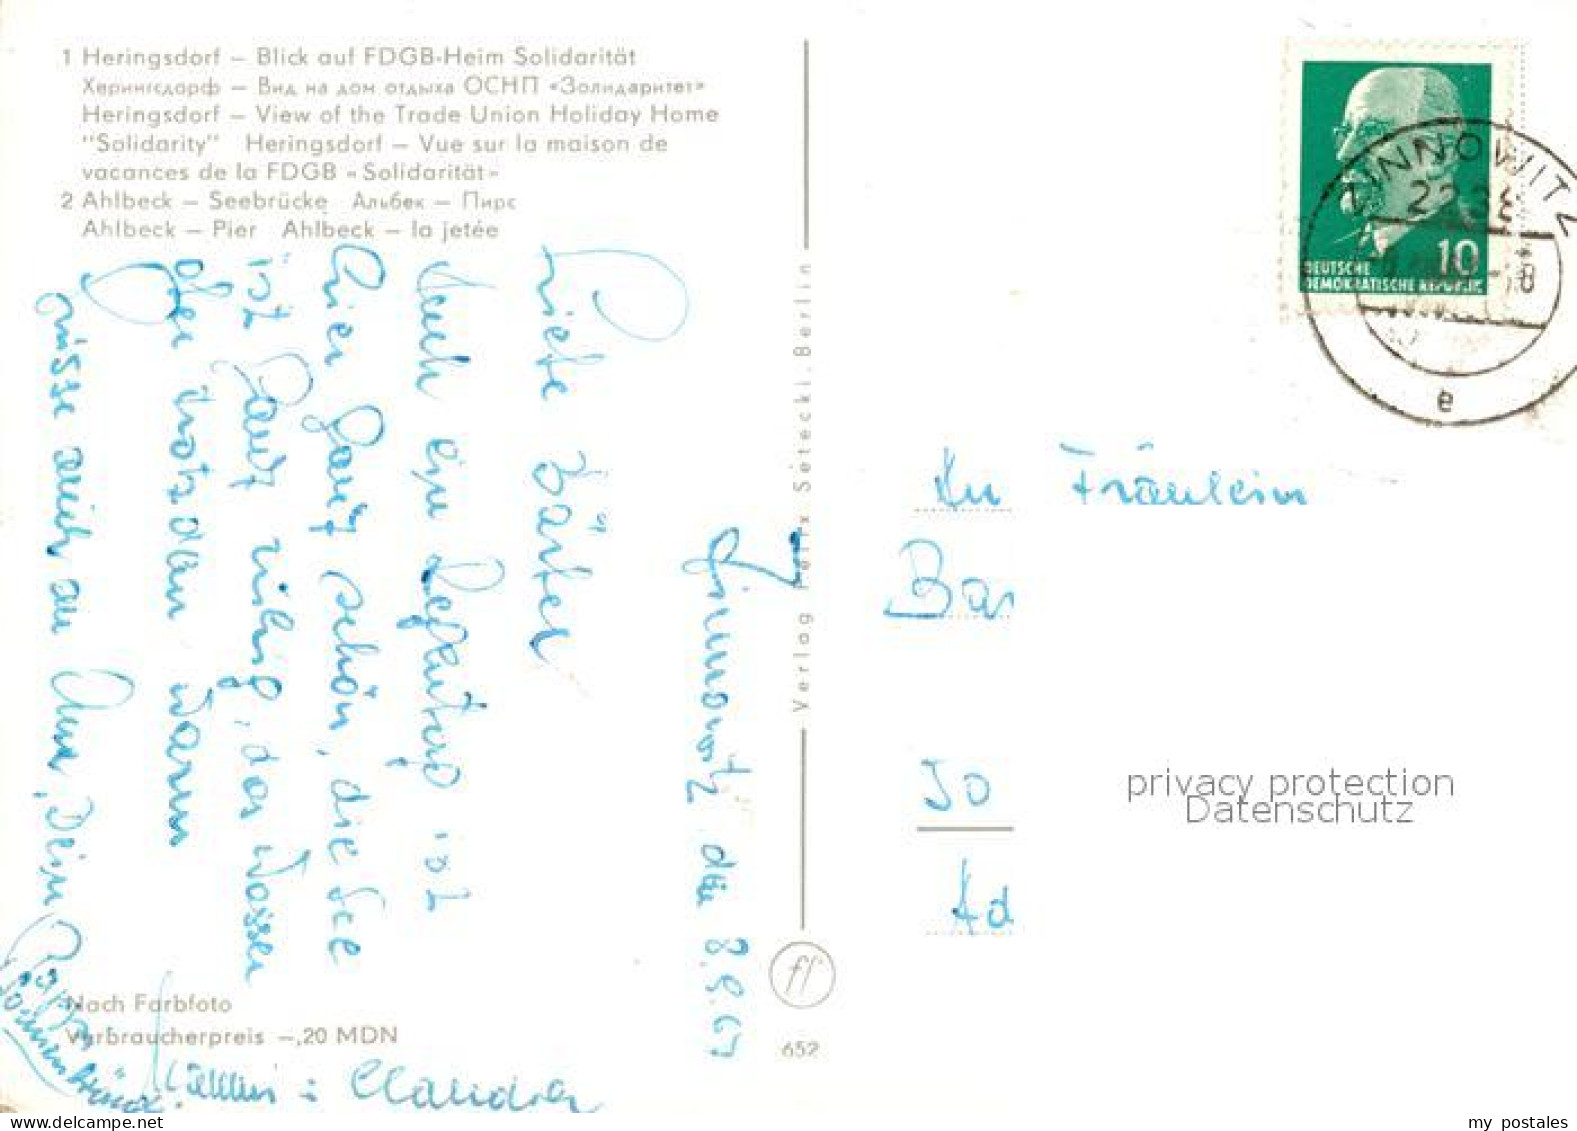 1 Heringsdorf – Blick auf FDGB-Heim Solidarität
Херингсдорф – Вид на дом отдыха ОСНП «Золидаритет»
Heringsdorf – View of the Trade Union Holiday Home
"Solidarity" Heringsdorf – Vue sur la maison de
vacances de la FDGB «Solidarität»
2 Ahlbeck – Seebrücke Альбек – Пирс
Ahlbeck – Pier Ahlbeck – la jetée
Zinnowitz den 8.9.67
Liebe
Auch ein ist
hier ganz schön, die See
ist ganz ruhig, das Wasser
aber trotzdem warm
Grüsse auch an Deine
Claudia
Nach Farbfoto
Verbraucherpreis –,20 MDN
Verlag Felix Setecki, Berlin
ff
652
DEUTSCHE
DEMOKRATISCHE REPUBLIK
10
ZINNOWITZ
2238
-18
e
An Fräulein
Bar
Jo
Ad
privacy protection
Datenschutz
www.delcampe.net
my postales